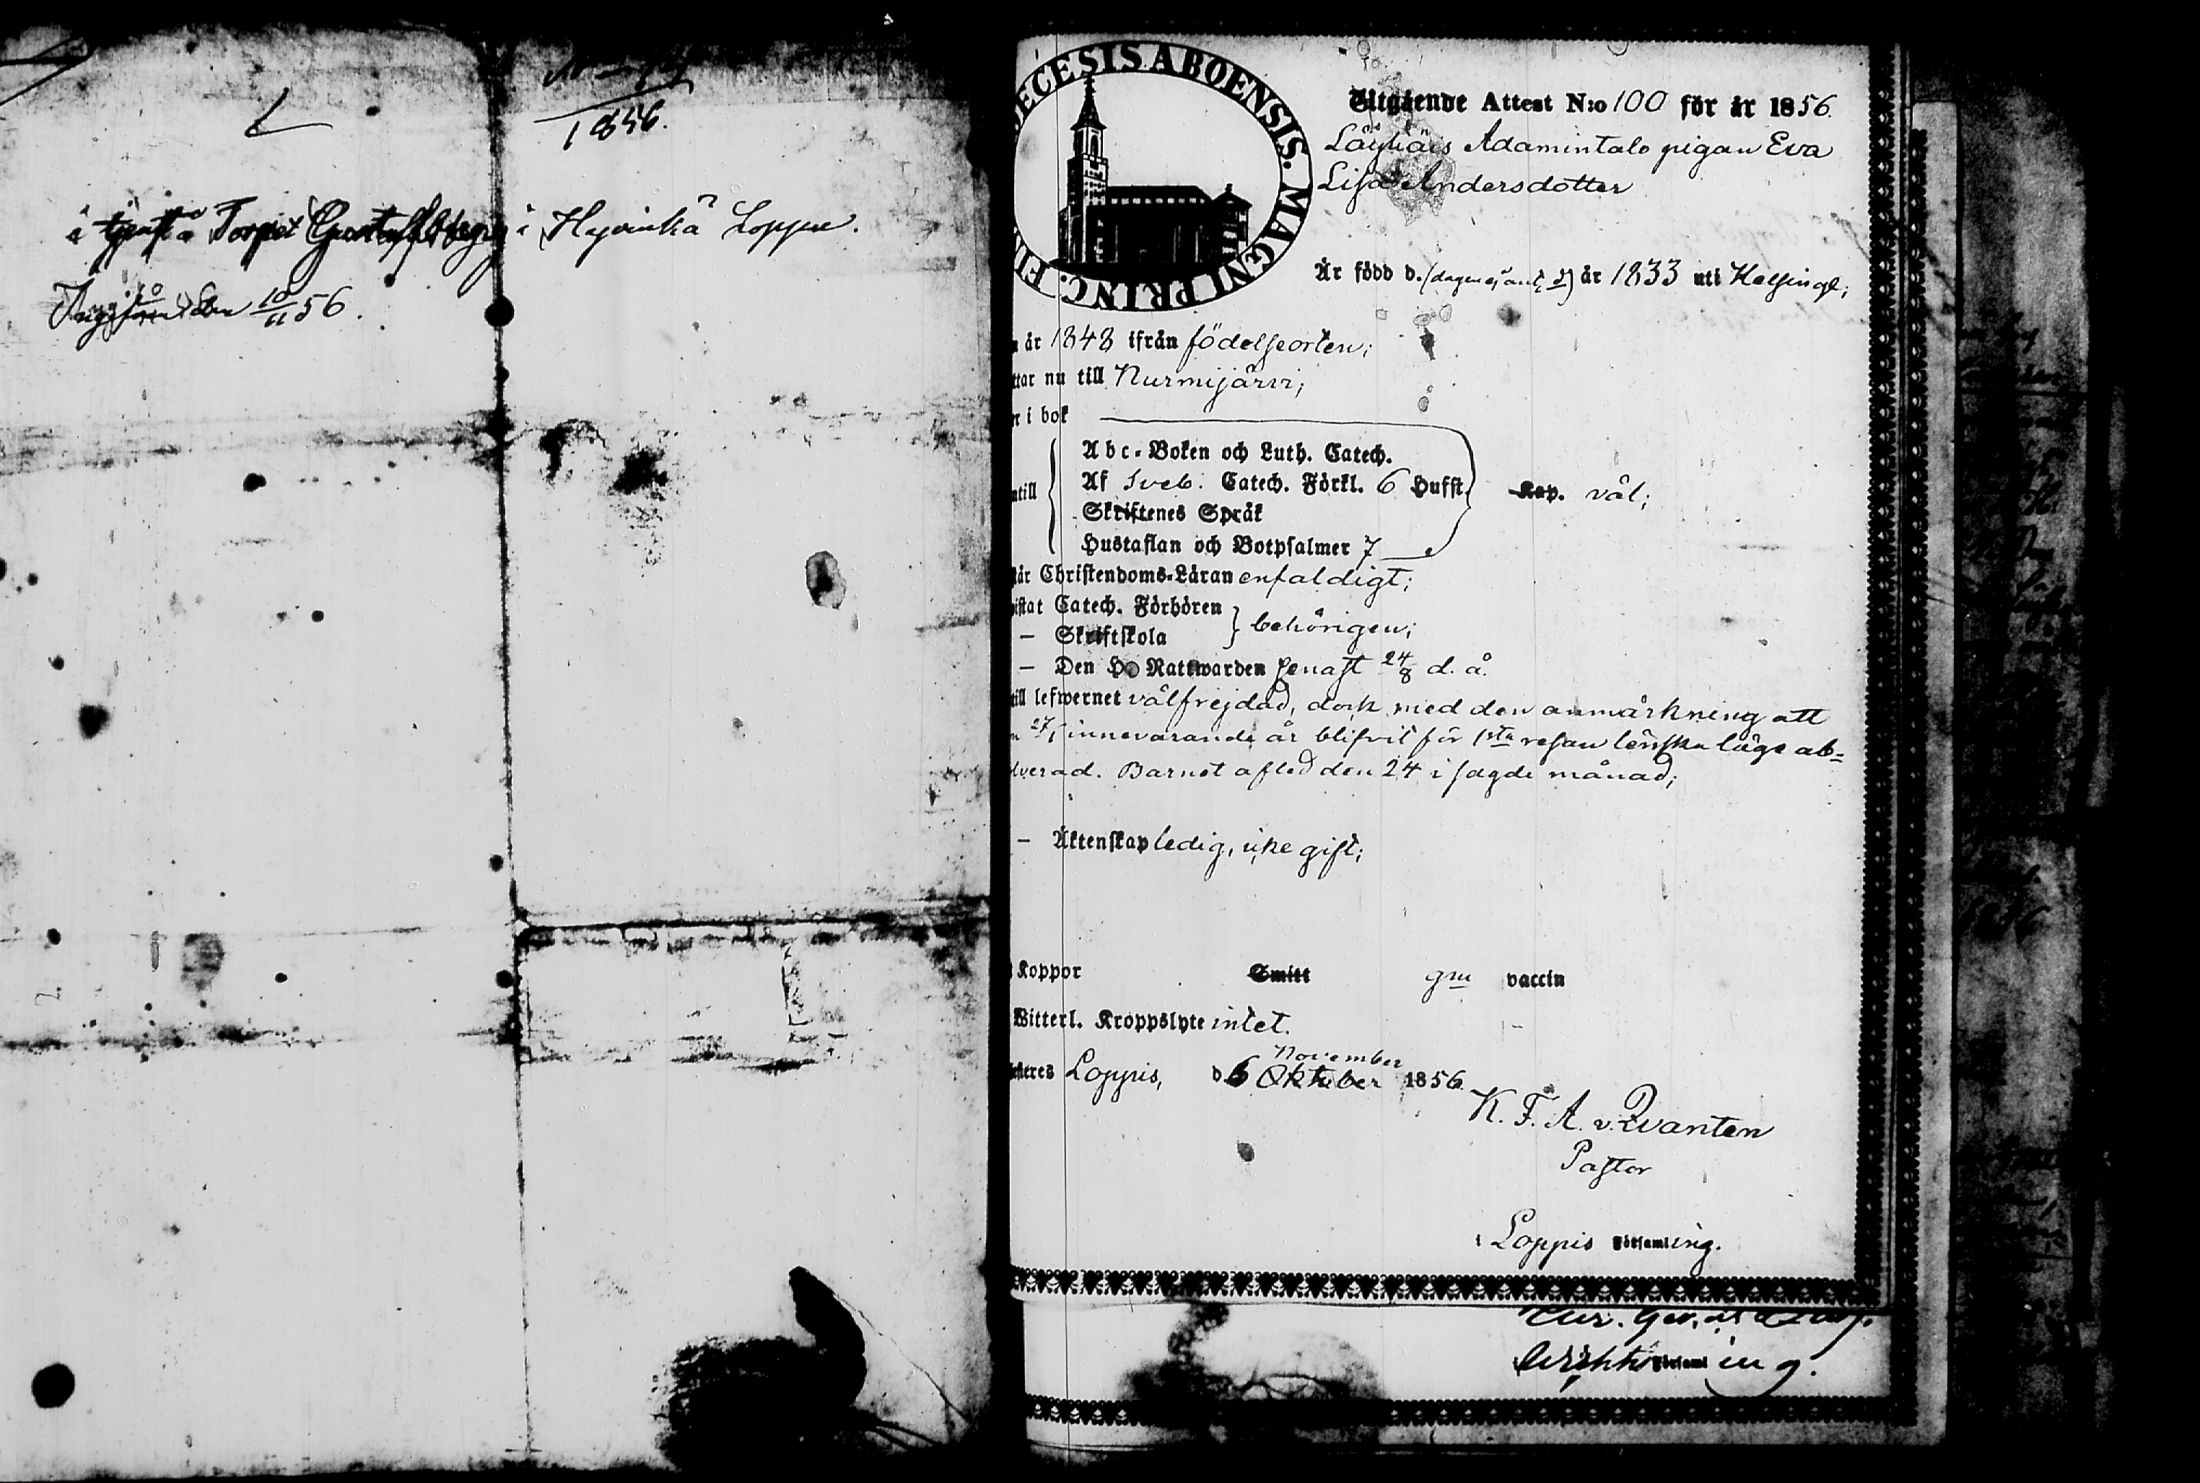 1856.
i Hyvinkä Loppis.
10/11 56.
DIECESIS ABOENSIS. MAGNI PRINC. FI
Utgående Attest N:o 100 för år 1856.
Läyliäis Adamintalo pigan Eva
Lisa Andersdotter
Är född d. (dagen ej ant.) år 1833 uti Helsinge;
år 1848 ifrån födelseorten;
ttar nu till Nurmijärvi;
er i bok
Abc-Boken och Luth. Catech.
ntill Af Sveb. Catech. Förkl. 6 Hufst. Kap. väl;
Skriftenes Språk
Hustaflan och Botpsalmer 7
står Christendoms-Läran enfaldigt;
istat Catech. Förhören
— Skriftskola } behörigen;
— Den H. Nattwarden senast 24/8 d. å.
till lefwernet välfrejdad, dock med den anmärkning att
n 27/ innevarande år blifvit för 1sta resan lönska läge ab-
lverad. Barnet afled den 24 i sagde månad;
— Äktenskap ledig, icke gift;
Koppor Smitt gm vaccin
Witterl. Kroppslyte intet.
November
steres Loppis, d. 6 Oktober 1856.
K. F. A. v. Qvanten
Pastor
i Loppis Församling.
Församling.